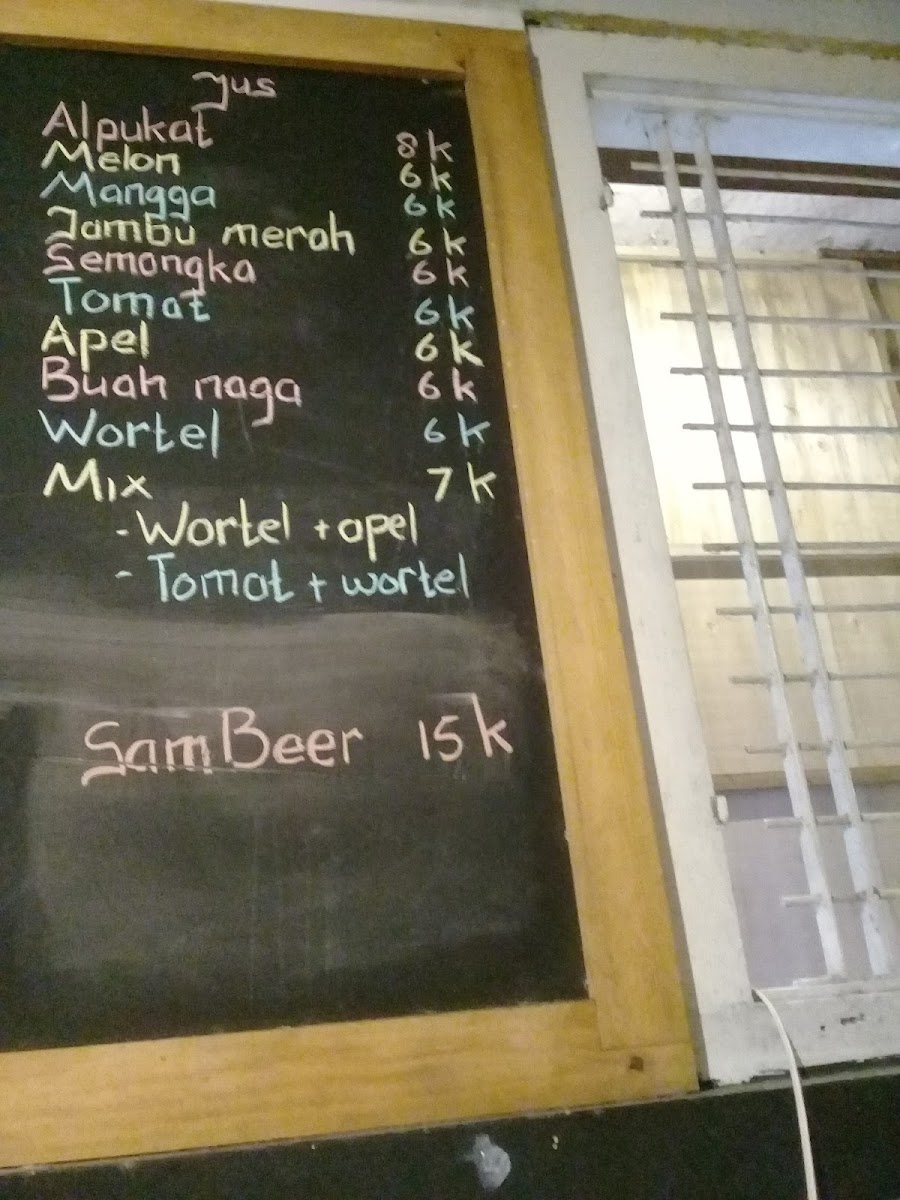 Jus
Alpukat 8k
Melon 6k
Mangga 6k
Jambu merah 6k
Semangka 6k
Tomat 6k
Apel 6k
Buah naga 6k
Wortel 6k
Mix 7k
- Wortel + apel
- Tomat + wortel
Sam Beer 15k